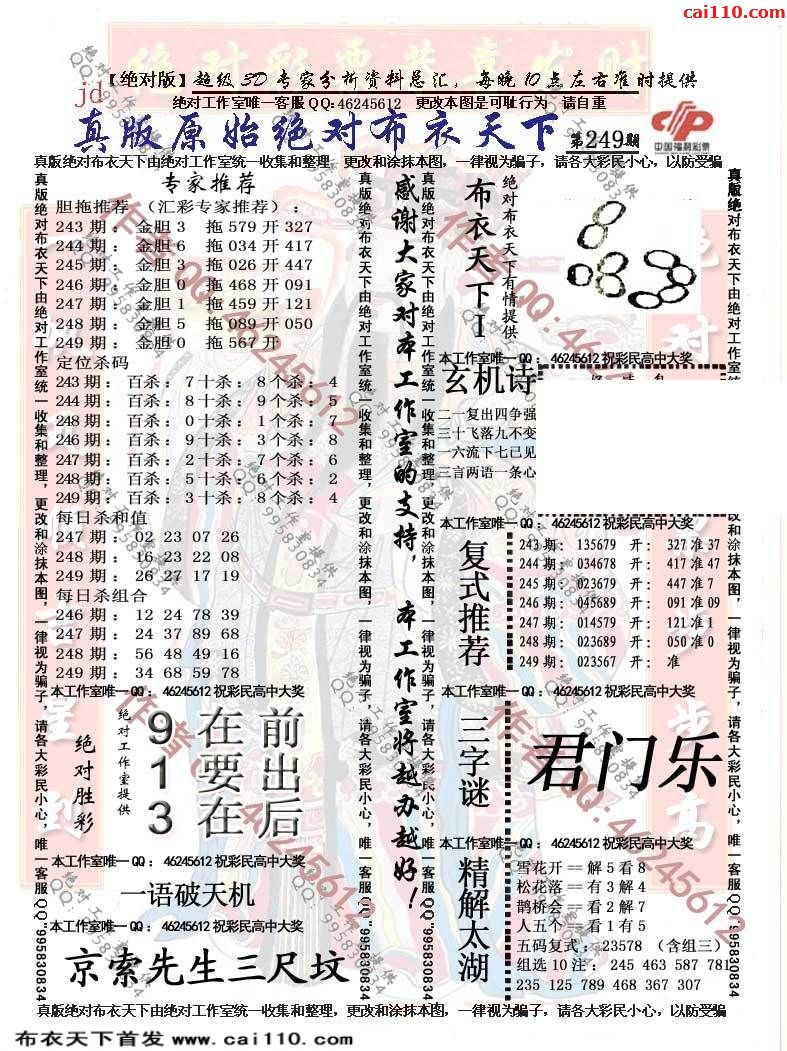 cai110.com
【绝对版】超级3D专家分析资料总汇，每晚10点左右准时提供
jd
绝对工作室唯一客服QQ:46245612 更改本图是可耻行为 请自重
真版原始绝对布衣天下 第249期
中国福利彩票
真版绝对布衣天下由绝对工作室统一收集和整理，更改和涂抹本图，一律视为骗子，请各大彩民小心，以防受骗
专家推荐
胆拖推荐（汇彩专家推荐）：
243期：金胆3 拖579开327
244期：金胆6 拖034开417
245期：金胆3 拖026开447
246期：金胆0 拖468开091
247期：金胆1 拖459开121
248期：金胆5 拖089开050
249期：金胆0 拖567开
定位杀码
243期：百杀：7十杀：8个杀：4
244期：百杀：8十杀：9个杀：5
248期：百杀：0十杀：1个杀：7
246期：百杀：9十杀：3个杀：8
247期：百杀：2十杀：7个杀：6
248期：百杀：5十杀：6个杀：2
249期：百杀：3十杀：8个杀：4
每日杀和值
247期：02 23 07 26
248期：16 23 22 08
249期：26 27 17 19
每日杀组合
246期：12 24 78 39
247期：24 37 89 68
248期：56 48 49 16
249期：34 68 59 78
本工作室唯一QQ：46245612祝彩民高中大奖
绝对胜彩
绝对工作室提供
9在前
1要出
3在后
本工作室唯一QQ：46245612祝彩民高中大奖
一语破天机
本工作室唯一QQ：46245612祝彩民高中大奖
京索先生三尺坟
真版绝对布衣天下由绝对工作室统一收集和整理，更改和涂抹本图，一律视为骗子，请各大彩民小心，唯一客服QQ:995830834
真版绝对布衣天下由绝对工作室统一收集和整理，更改和涂抹本图，一律视为骗子，请各大彩民小心，唯一客服QQ:995830834
感谢大家对本工作室的支持，本工作室将越办越好！
真版绝对布衣天下由绝对工作室统一收集和整理，更改和涂抹本图，一律视为骗子，请各大彩民小心，唯一客服QQ:995830834
布衣天下I
绝对布衣天下有情提供
本工作室唯一QQ：46245612祝彩民高中大奖
玄机诗
二一复出四争强
三十飞落九不变
一六流下七已见
三言两语一条心
本工作室唯一QQ：46245612祝彩民高中大奖
复式推荐
243期：135679 开：327准37
244期：034678 开：417准47
245期：023679 开：447准7
246期：045689 开：091准09
247期：014579 开：121准1
248期：023689 开：050准0
249期：023567 开：准
本工作室唯一QQ：46245612祝彩民高中大奖
三字谜
君门乐
本工作室唯一QQ：46245612祝彩民高中大奖
精解太湖
雪花开==解5看8
松花落==有3解4
鹊桥会==看2解7
人五个==看1有5
五码复式：23578（含组三）
组选10注：245 463 587 781
235 125 789 468 367 307
真版绝对布衣天下由绝对工作室统一收集和整理，更改和涂抹本图，一律视为骗子，请各大彩民小心，唯一客服QQ:995830834
真版绝对布衣天下由绝对工作室统一收集和整理，更改和涂抹本图，一律视为骗子，请各大彩民小心，以防受骗
布衣天下首发 www.cai110.com
作者QQ:46245612
绝对工作室提供
QQ:995830834